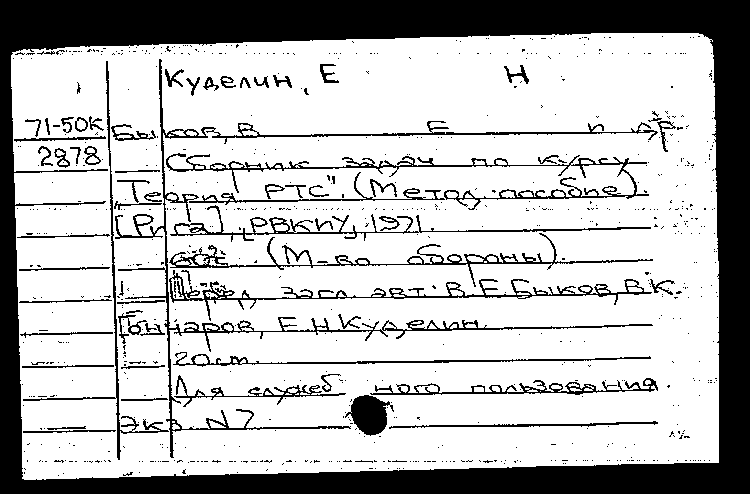 Куделин, Е Н
71-50К Быков, В Е и др
2878 Сборник задач по курсу
"Теория РТС". (Метод. пособие).
[Рига], [РВКИУ], 1971.
(М-во обороны).
Перед загл. авт: В.Е.Быков, В.К.
Гончаров, Е.Н.Куделин.
20см.
Для служебного пользования.
Экз. N7